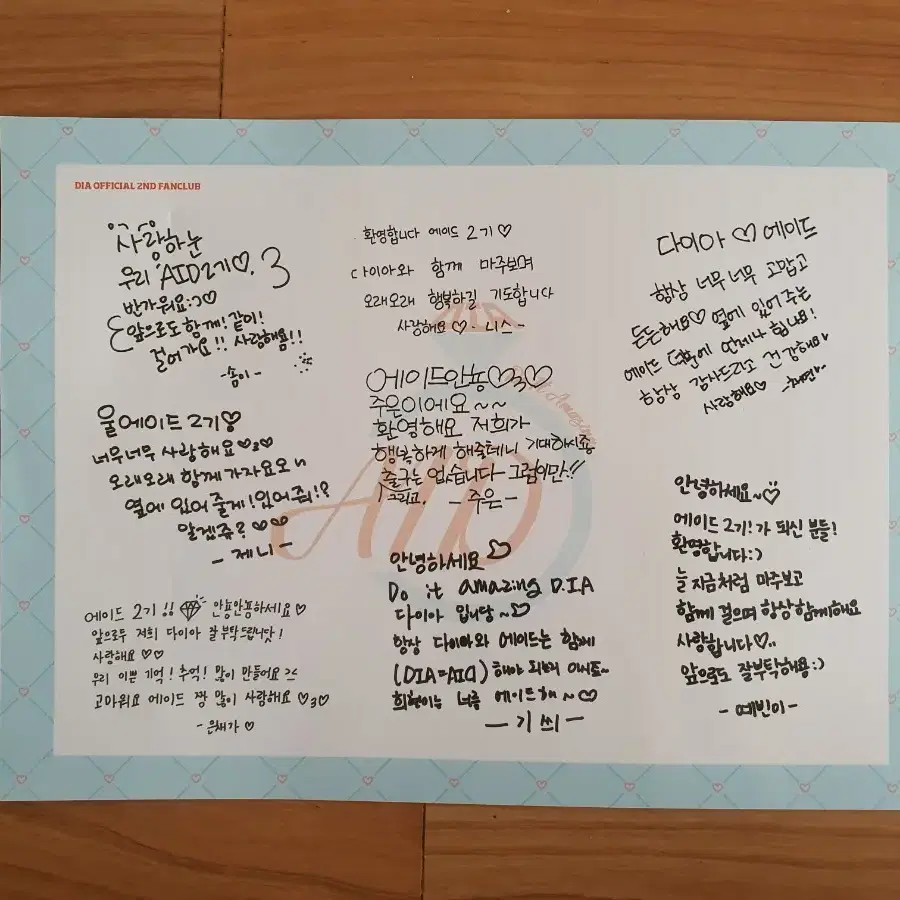 DIA OFFICIAL 2ND FANCLUB
사랑하눈
우리 AID2기♡. 3
반가워요:)♡
앞으로도 함께! 같이!
걸어가요!! 사랑해욤!!
-솜이-
환영합니다 에이드 2기♡
다이아와 함께 마주보며
오래오래 행복하길 기도합니다
사랑해요♡ - 니스 -
다이아♡에이드
항상 너무너무 고맙고
든든해요♡ 옆에 있어 주는
에이드 덕분에 언제나 힘나요!
항상 감사드리고 건강해요
사랑해요♡ -채연-
울에이드 2기♡
너무너무 사랑해요♡3♡
오래오래 함께가자요오
옆에 있어줄게!있어줘!?
알겠쥬? ♡♡
- 제니 -
에이드안뇽♡3♡
주은이에요~~
환영해요 저희가
행복하게 해줄테니 기대하시죵
출구는 없습니다 그럼이만!!
- 주은 -
안녕하세요~
에이드 2기!가 되신 분들!
환영합니다:)
늘 지금처럼 마주보고
함께 걸으며 항상함께해요
사랑합니다♡..
앞으로도 잘부탁해용:)
- 예빈이 -
에이드 2기!! 안뇽안뇽하세요♡
앞으로두 저희 다이아 잘 부탁드립니닷!
사랑해요♡♡
우리 이쁜 기억! 추억! 많이 만들어요 >.<
고마워요 에이드 짱 많이 사랑해요 ♡3♡
- 은채가 ♡
안녕하세요♡
Do it amazing D.I.A
다이아 입니당~♡
항상 다이아와 에이드는 함께
(DIA=AID) 해야 되는거 아시죠~
희현이는 너를 에이드해~♡
- 기씌 -
AID